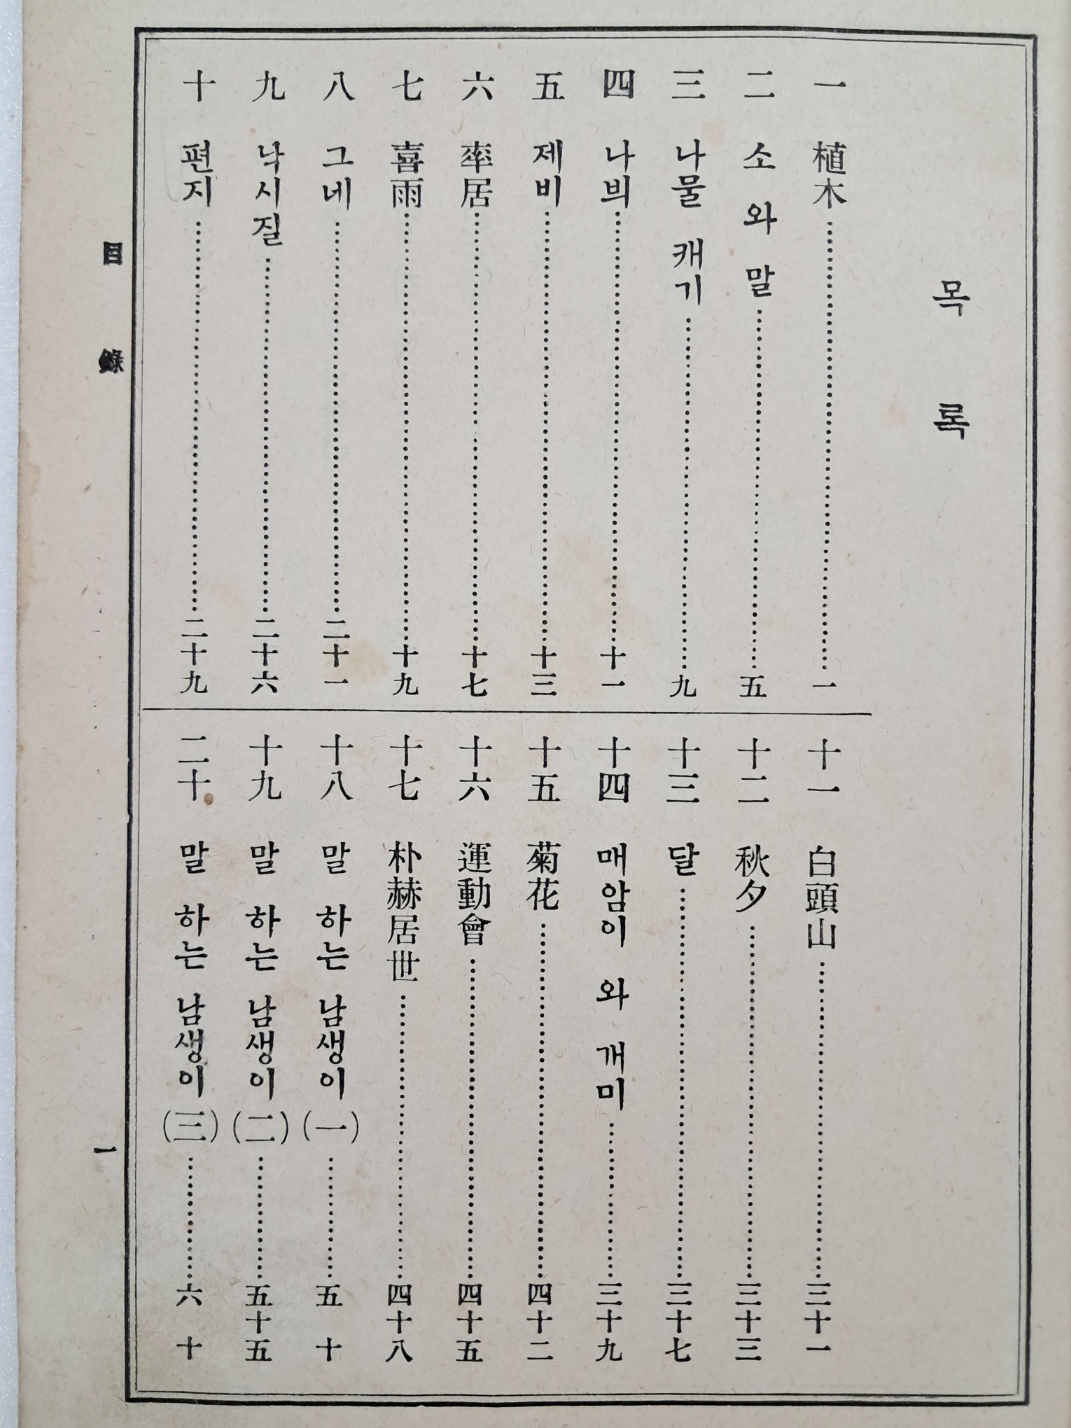 목 록
一 植木 一
二 소 와 말 五
三 나물 캐기 九
四 나븨 十一
五 제비 十三
六 率居 十七
七 喜雨 十九
八 그네 二十一
九 낙시질 二十六
十 편지 二十九
十一 白頭山 三十一
十二 秋夕 三十三
十三 달 三十七
十四 매암이 와 개미 三十九
十五 菊花 四十二
十六 運動會 四十五
十七 朴赫居世 四十八
十八 말 하는 남생이 (一) 五十
十九 말 하는 남생이 (二) 五十五
二十 말 하는 남생이 (三) 六十
目 錄 一